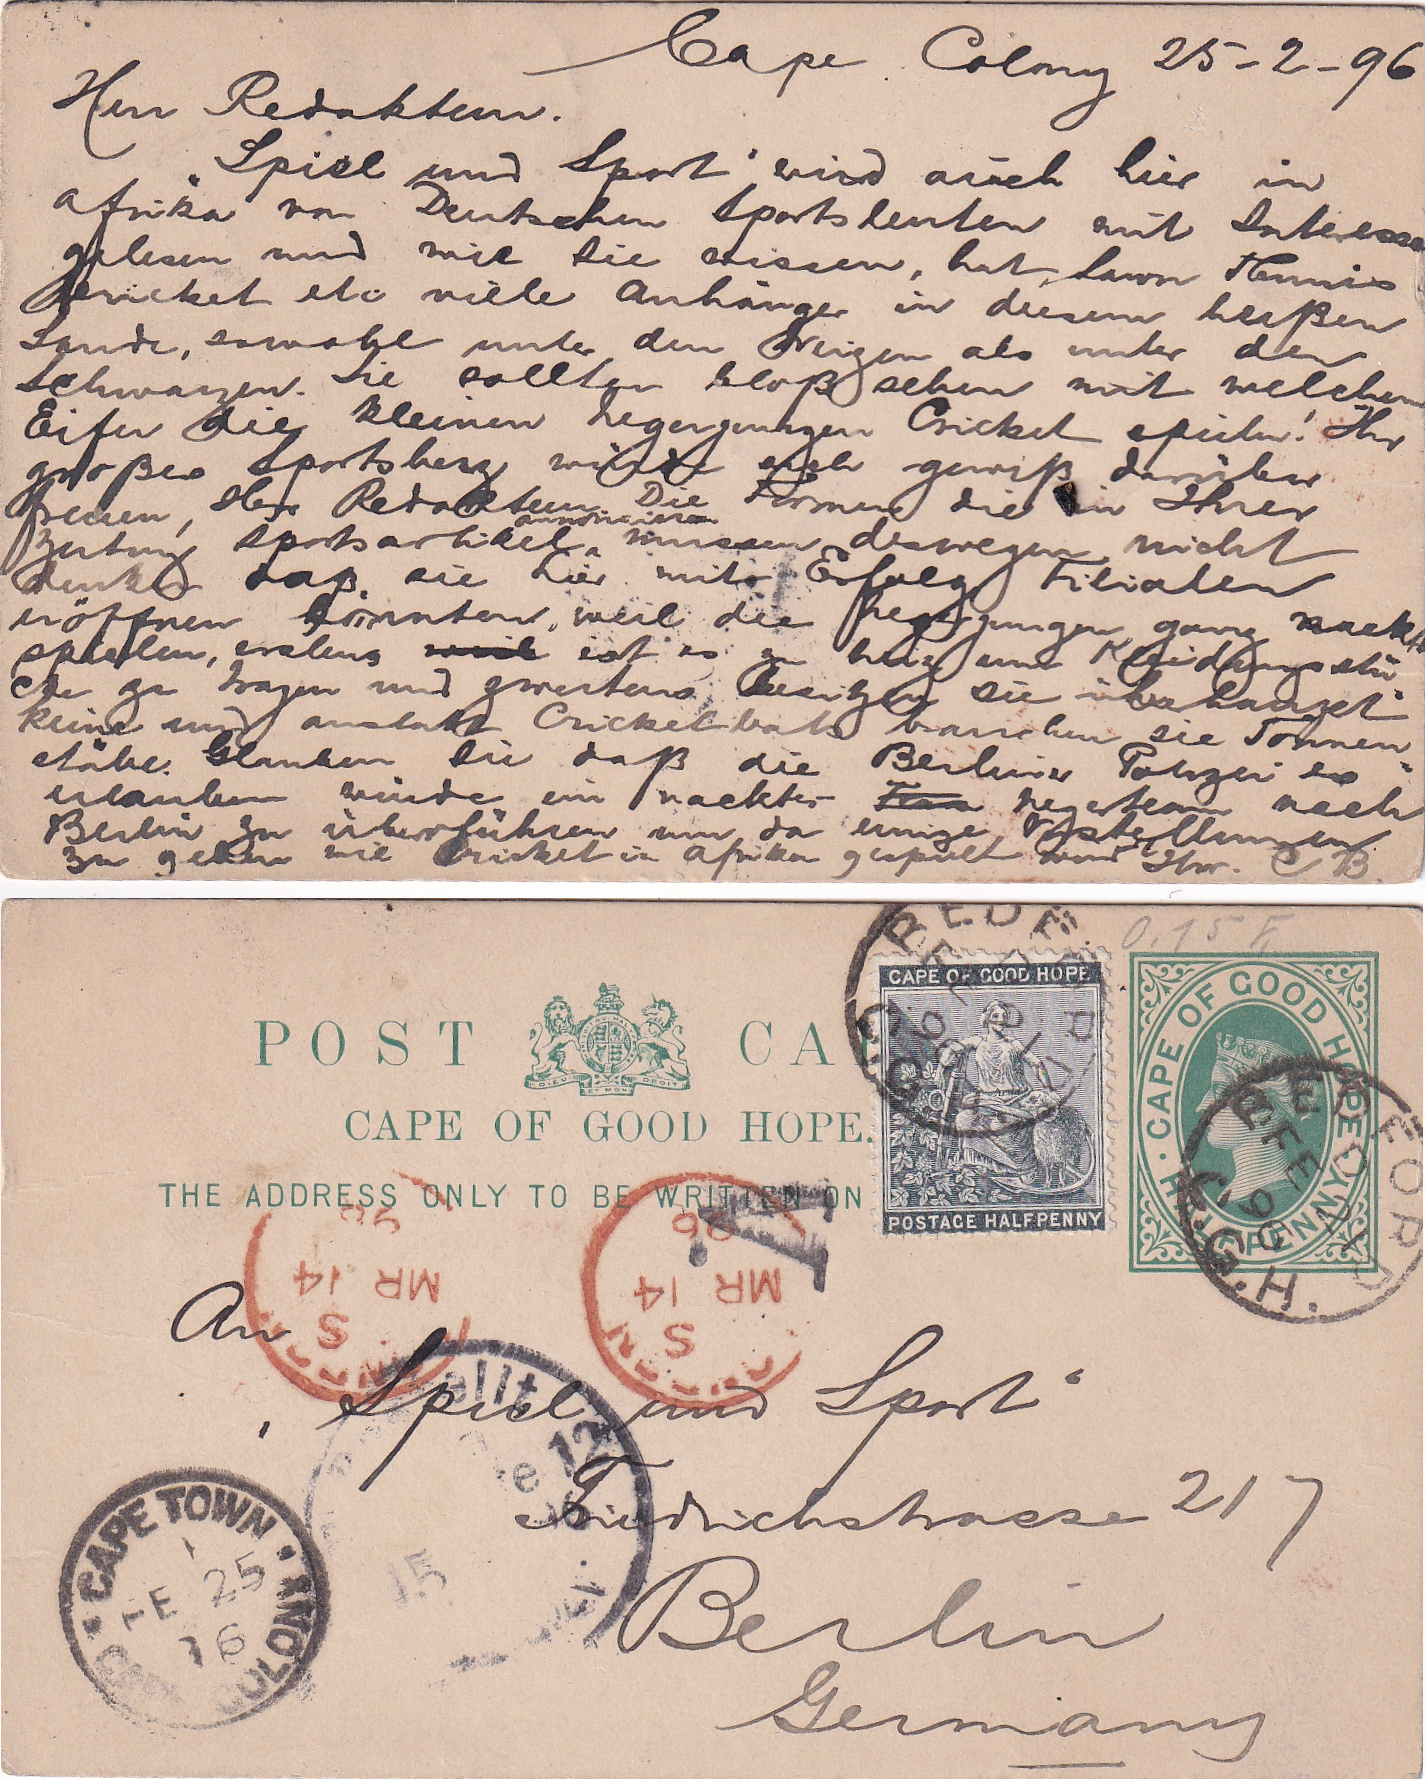 Cape Colony 25-2-96
Herr Redakteur.
„Spiel und Sport" wird auch hier in
Afrika von Deutschen Sportsleuten mit Interesse
gelesen und wie Sie wissen, hat Lawn Tennis
Cricket etc viele Anhänger in diesem heißen
Lande, sowohl unter den Weizen als unter den
Schwarzen. Sie sollten bloß sehen mit welchem
Eifer die kleinen Negerjungen Cricket spielen! Ihr
großes Sportsherz würde sich gewiß darüber
freuen, Herr Redakteur. Die Firmen die in Ihrer
Zeitung Sportsartikel annoncieren müssen deswegen nicht
denken daß sie hier mit Erfolg Filialen
eröffnen könnten, weil die Negerjungen ganz nackt
spielen, erstens ist es zu heiz um Kleidungsstü-
cke zu tragen und zweitens besitzen sie überhaupt
keine und anstatt Cricketbats brauchen sie Tonnen-
stäbe. Glauben Sie daß die Berliner Polizei es
erlauben würde ein nacktes Negerteam nach
Berlin zu überführen um da einige Vorstellungen
zu geben wie Cricket in Afrika gespielt wird Ihr. C B.
0,15 F
POST CA
CAPE OF GOOD HOPE.
THE ADDRESS ONLY TO BE WRITTEN ON
DIEU ET MON DROIT
CAPE OF GOOD HOPE
POSTAGE HALFPENNY
CAPE OF GOOD HOPE
HALFPENNY
BEDFORD
FE
96
C.G.H.
BEDFORD
FE
96
C.G.H.
T
S
MR 14
96
S
MR 14
96
An
„Spiel und Sport"
Friedrichstrasse 217
Berlin
Germany
CAPE TOWN
1
FE 25
96
CAPE COLONY